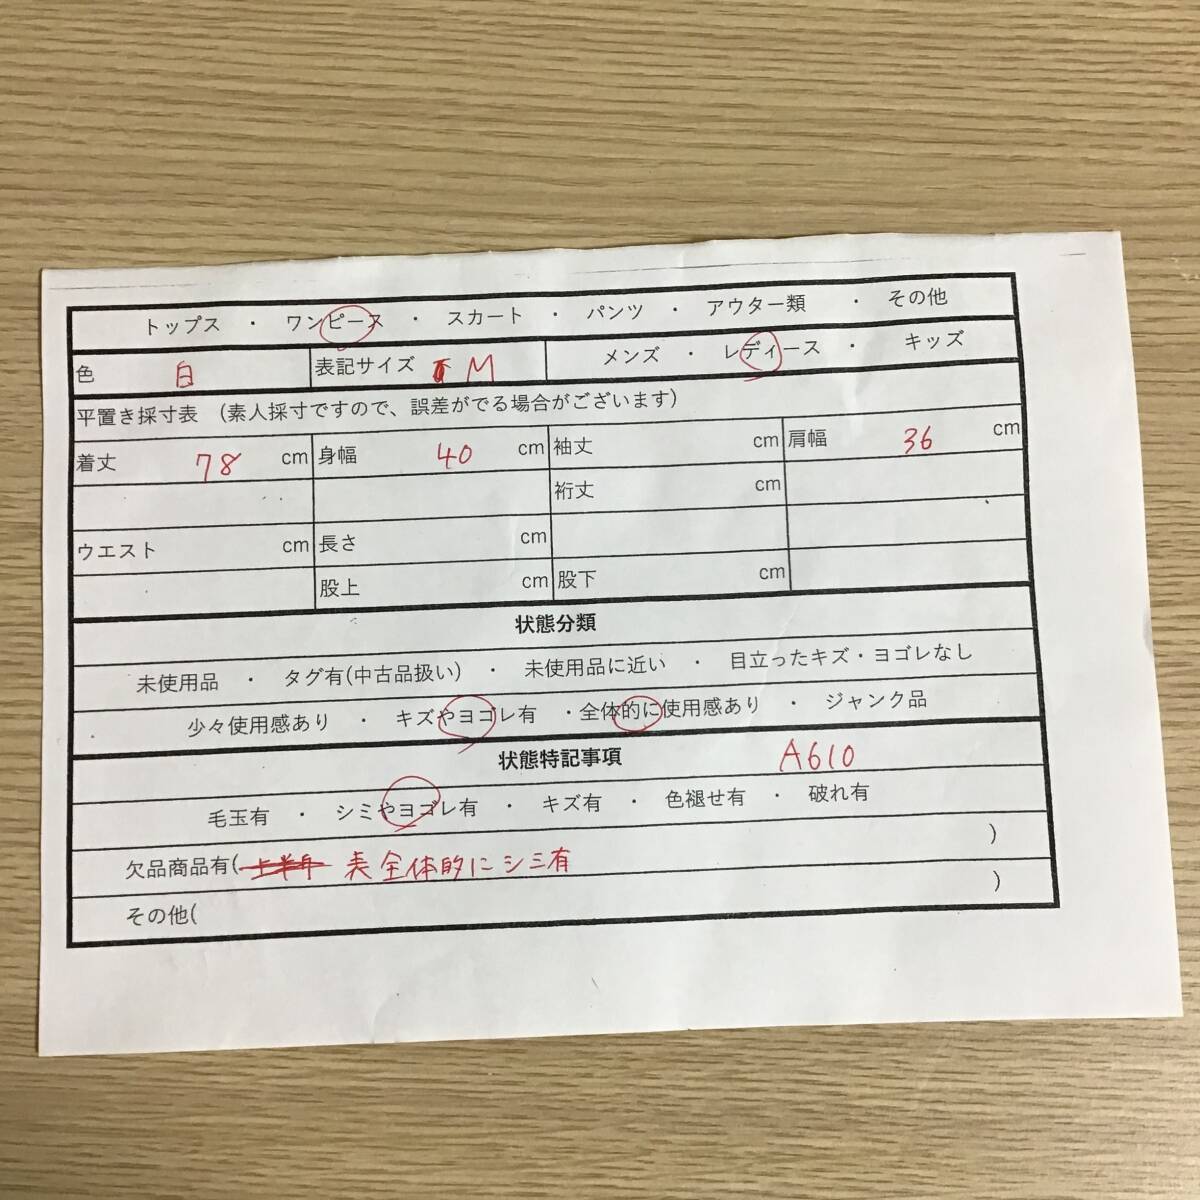 トップス ・ ワンピース ・ スカート ・ パンツ ・ アウター類 ・ その他
色 白 表記サイズ M メンズ ・ レディース ・ キッズ
平置き採寸表 (素人採寸ですので、誤差がでる場合がございます)
着丈 78 cm 身幅 40 cm 袖丈 cm 肩幅 36 cm
裄丈 cm
ウエスト cm 長さ cm
股上 cm 股下 cm
状態分類
未使用品 ・ タグ有(中古品扱い) ・ 未使用品に近い ・ 目立ったキズ・ヨゴレなし
少々使用感あり ・ キズやヨゴレ有 ・全体的に使用感あり ・ ジャンク品
状態特記事項 A610
毛玉有 ・ シミやヨゴレ有 ・ キズ有 ・ 色褪せ有 ・ 破れ有
欠品商品有( 表 全体的にシミ有 )
その他( )